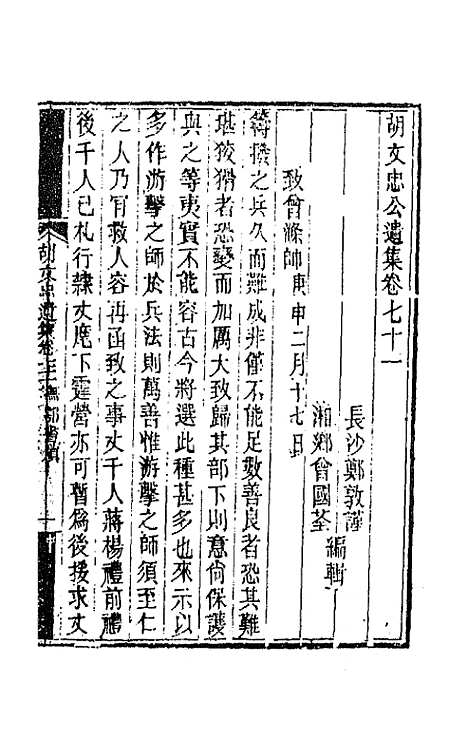 胡文忠公遺集卷七十一
長沙鄭敦謹
湘鄉曾國荃
編輯
致曾滌帥庚申二月十七日
籌撥之兵久而難成非僅不能足數善良者恐其難
堪狡猾者恐變而加厲大致歸其部下則意尚保護
與之等夷實不能容古今將選此種甚多也來示以
多作游擊之師於兵法則萬善惟游擊之師須至仁
之人乃肯救人容再函致之事丈千人蔣楊禮前禮
後千人已札行隸丈麾下霆營亦可暫為後援求丈
胡文忠公遺集卷七十一 撫鄂書牘